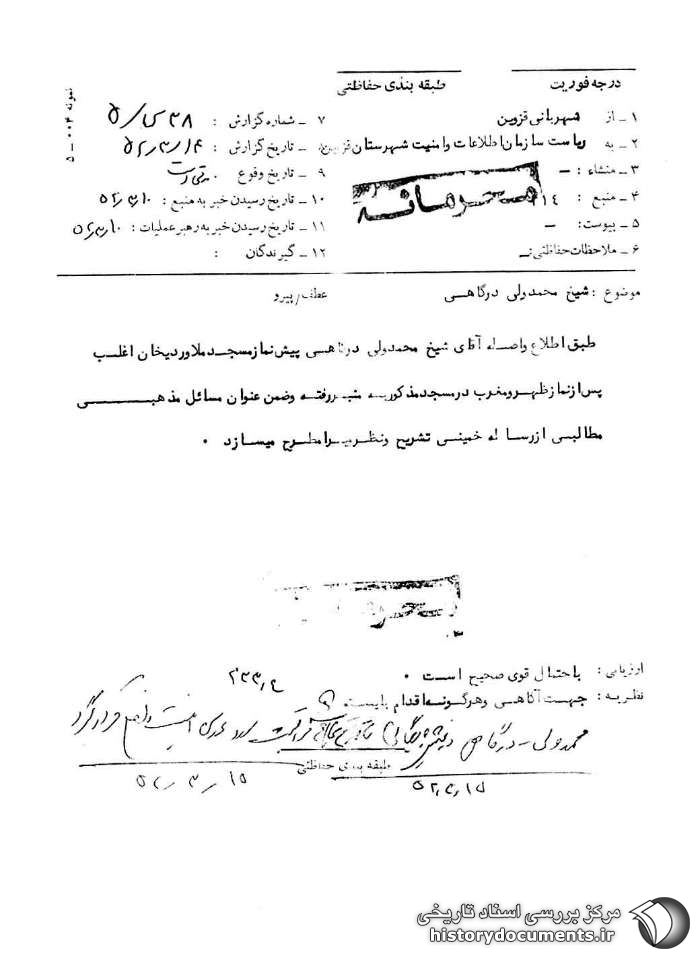 نمونه ۰۰۴ - ۵
درجه فوریت
طبقه بندی حفاظتی
۱ ـ از شهربانی قزوین
۲ ـ به ریاست سازمان اطلاعات وامنیت شهرستان قزوین
۳ ـ منشاء : ـ
۴ ـ منبع : ۱٤
۵ ـ پیوست : ـ
۶ ـ ملاحظات حفاظتی : ـ
۷ ـ شماره گزارش :
۸ ـ تاریخ گزارش : ۵۲٫۳٫۱۴
۹ ـ تاریخ وقوع :
۱۰ ـ تاریخ رسیدن خبر به منبع : ۵۲٫۳٫۱۰
۱۱ ـ تاریخ رسیدن خبر به رهبر عملیات : ۵۲٫۳٫۱۰
۱۲ ـ گیرندگان :
محرمانه
موضوع : شیخ محمدولی درگاهی
عطف/پیرو
طبق اطلاع واصله آقای شیخ محمدولی درگاهی پیش نماز مسجد ملاوردیخان اغلب
پس از نماز ظهر و مغرب در مسجد مذکور به منبر رفته وضمن عنوان مسائل مذهبی
مطالبی از رساله خمینی تشریح ونظریه را مطرح میسازد .
محرمانه
ارزیابی : باحتمال قوی صحیح است .
نظریه : جهت آگاهی وهرگونه اقدام بایسته
طبقه بندی حفاظتی
مرکز بررسی اسناد تاریخی
historydocuments.ir